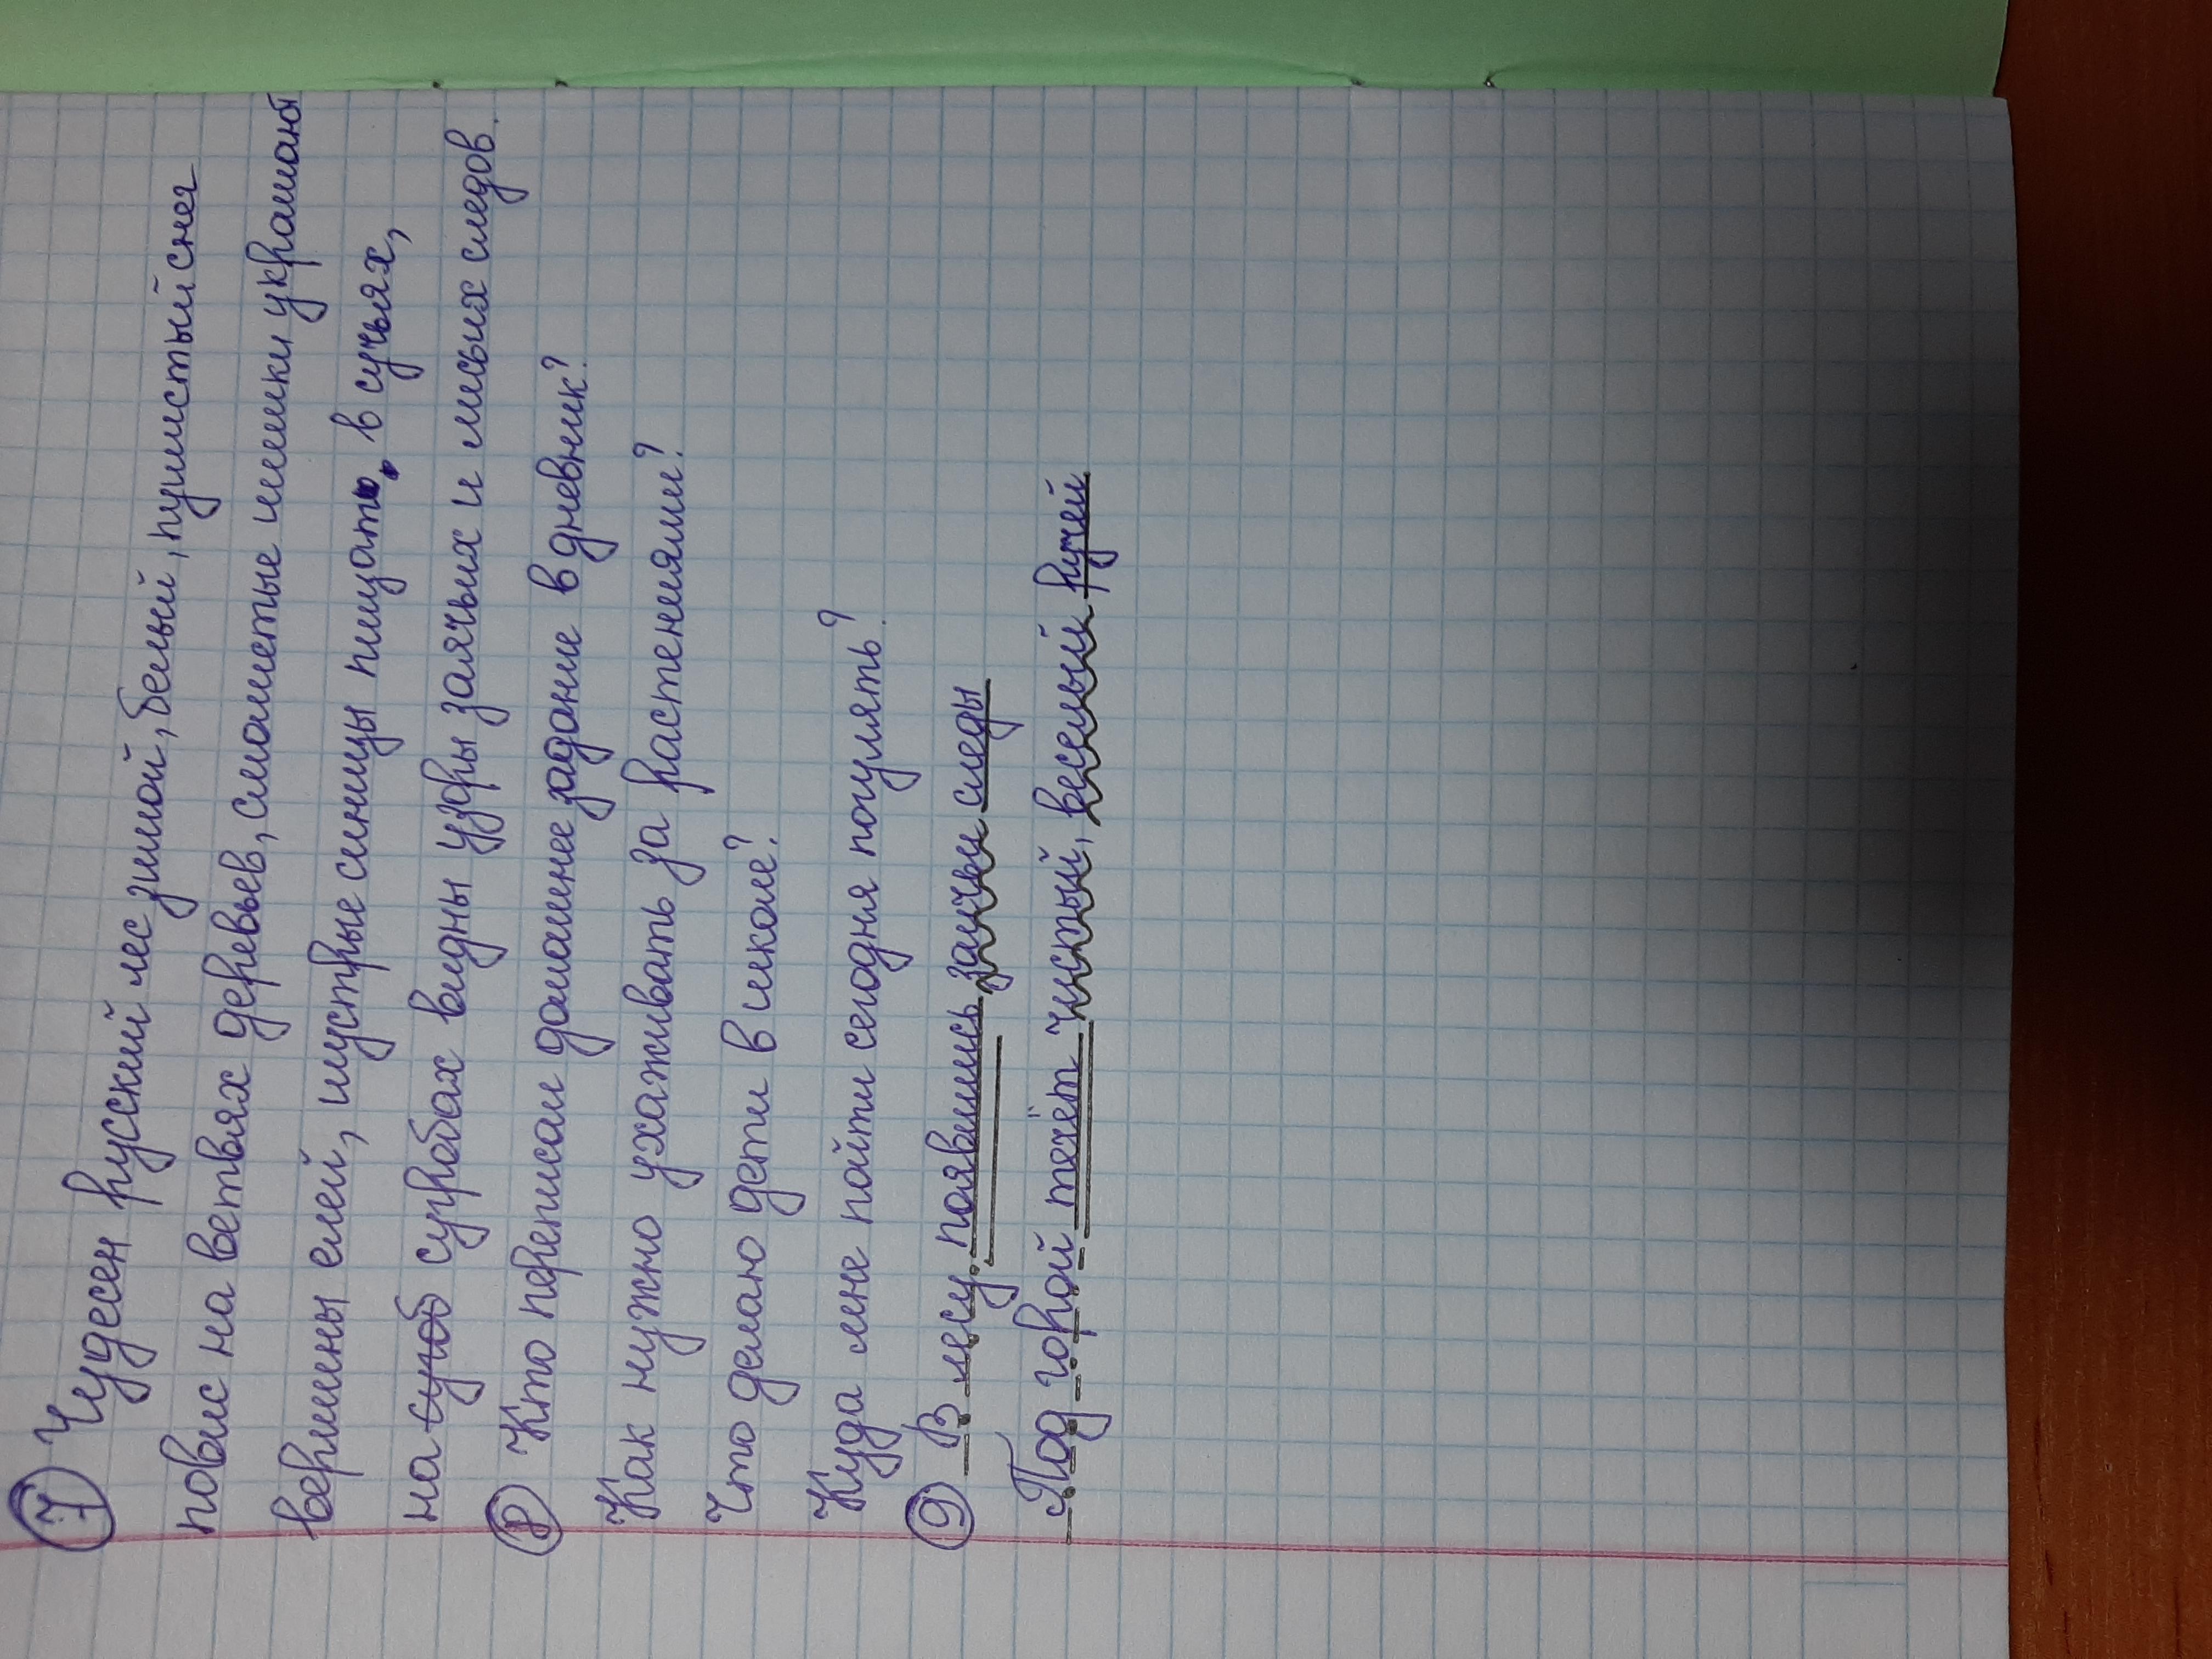 7 Чудесен русский лес зимой, белый, пушистый снег
повис на ветвях деревьев, смолистые шишки украшают
вершины елей, шустрые синицы пищат в сучьях,
на суроб сугробах видны узоры заячьих и лисьих следов.
8 Кто переписал домашнее задание в дневник?
Как нужно ухаживать за растениями?
Что делаю дети в школе?
Куда мне пойти сегодня погулять?
9 В лесу появились заячьи следы
Под горой течёт чистый, веселый ручей